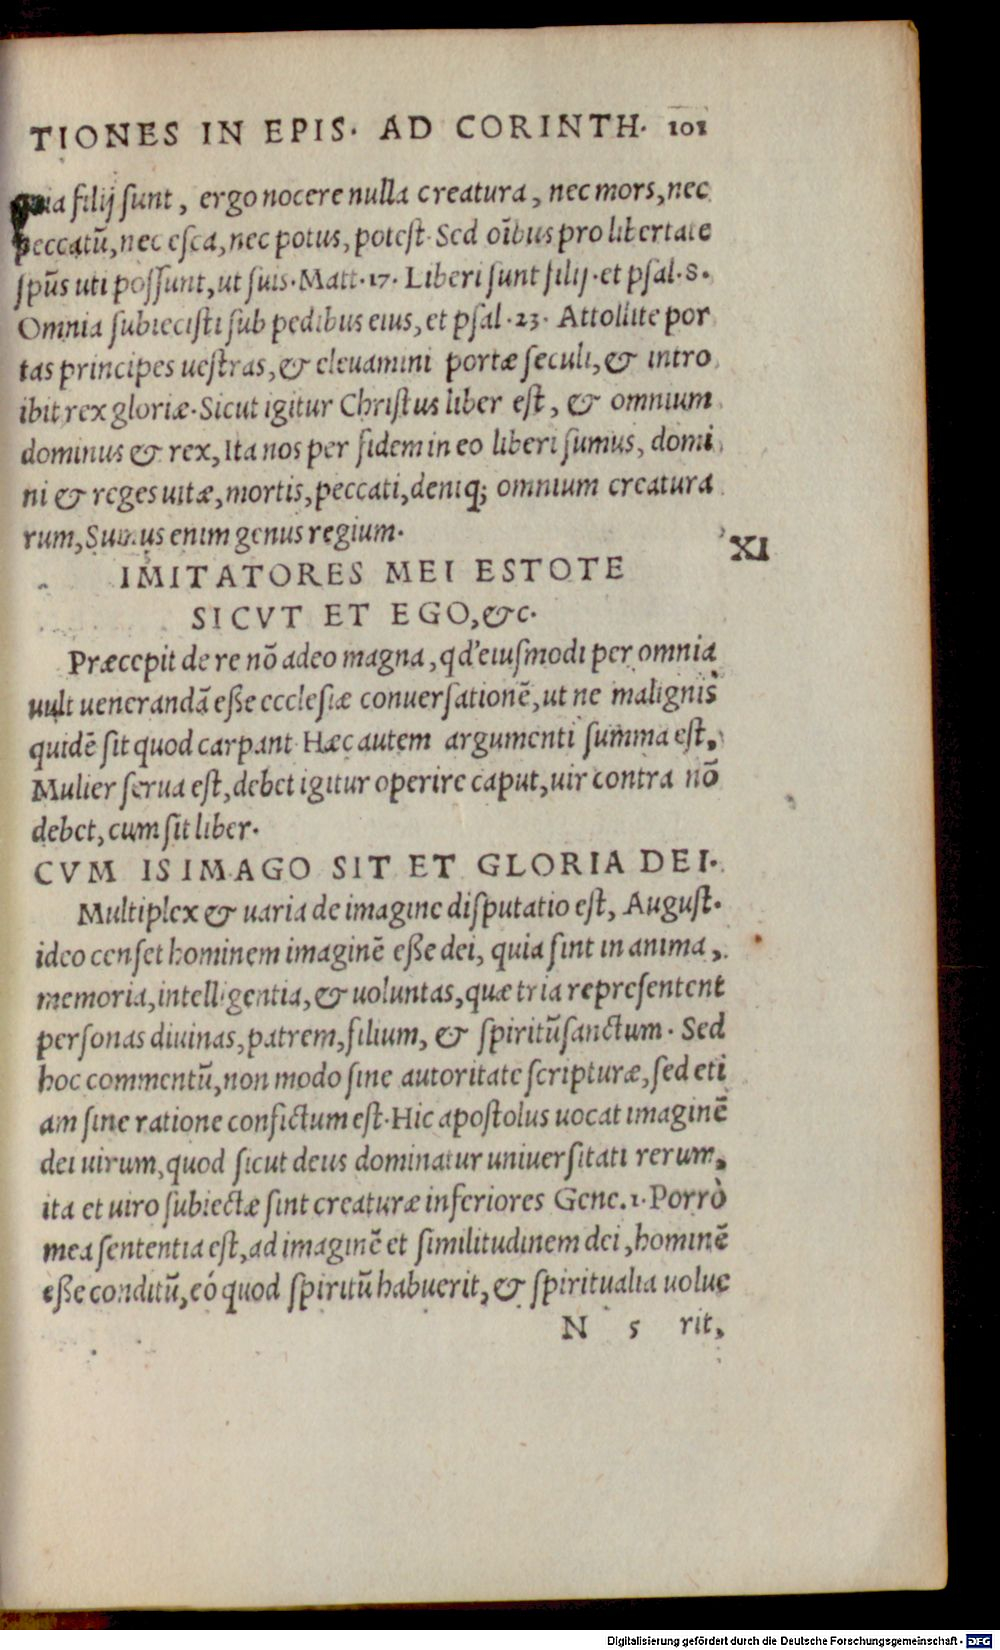 TIONES IN EPIS. AD CORINTH. 101
quia filij sunt, ergo nocere nulla creatura, nec mors, nec
peccatū, nec esca, nec potus, potest. Sed oībus pro libertate
spūs uti possunt, ut suis. Matt. 17. Liberi sunt filij. et psal. 8.
Omnia subiecisti sub pedibus eius, et psal. 23. Attollite por
tas principes uestras, & eleuamini portæ seculi, & intro
ibit rex gloriæ. Sicut igitur Christus liber est, & omnium
dominus & rex, Ita nos per fidem in eo liberi sumus, domi
ni & reges uitæ, mortis, peccati, deniq; omnium creatura
rum, Sumus enim genus regium.
XI
IMITATORES MEI ESTOTE
SICVT ET EGO, &c.
Præcepit de re nō adeo magna, qd' eiusmodi per omnia
uult uenerandā esse ecclesiæ conuersationē, ut ne malignis
quidē sit quod carpant. Hæc autem argumenti summa est,
Mulier serua est, debet igitur operire caput, uir contra nō
debet, cum sit liber.
CVM IS IMAGO SIT ET GLORIA DEI.
Multiplex & uaria de imagine disputatio est, August.
ideo censet hominem imaginē esse dei, quia sint in anima,
memoria, intelligentia, & uoluntas, quæ tria representent
personas diuinas, patrem, filium, & spiritūsanctum. Sed
hoc commentū, non modo sine autoritate scripturæ, sed eti
am sine ratione confictum est. Hic apostolus uocat imaginē
dei uirum, quod sicut deus dominatur uniuersitati rerum,
ita et uiro subiectæ sint creaturæ inferiores Gene. 1. Porrò
mea sententia est, ad imaginē et similitudinem dei, hominē
esse conditū, eó quod spiritū habuerit, & spiritualia uolue
N 5 rit,
Digitalisierung gefördert durch die Deutsche Forschungsgemeinschaft - DFG